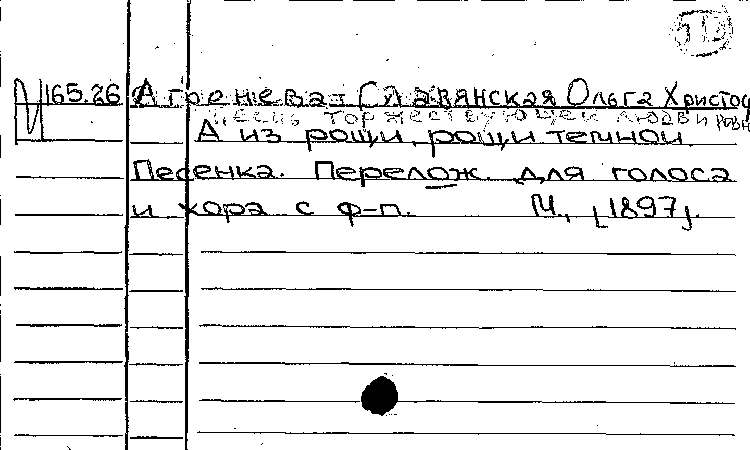 М 165.26 Агренева-Славянская Ольга Христо
Песнь торжествующей любви
А из рощи, рощи темной.
Песенка. Перелож. для голоса
и хора с ф-п. М., [1897].